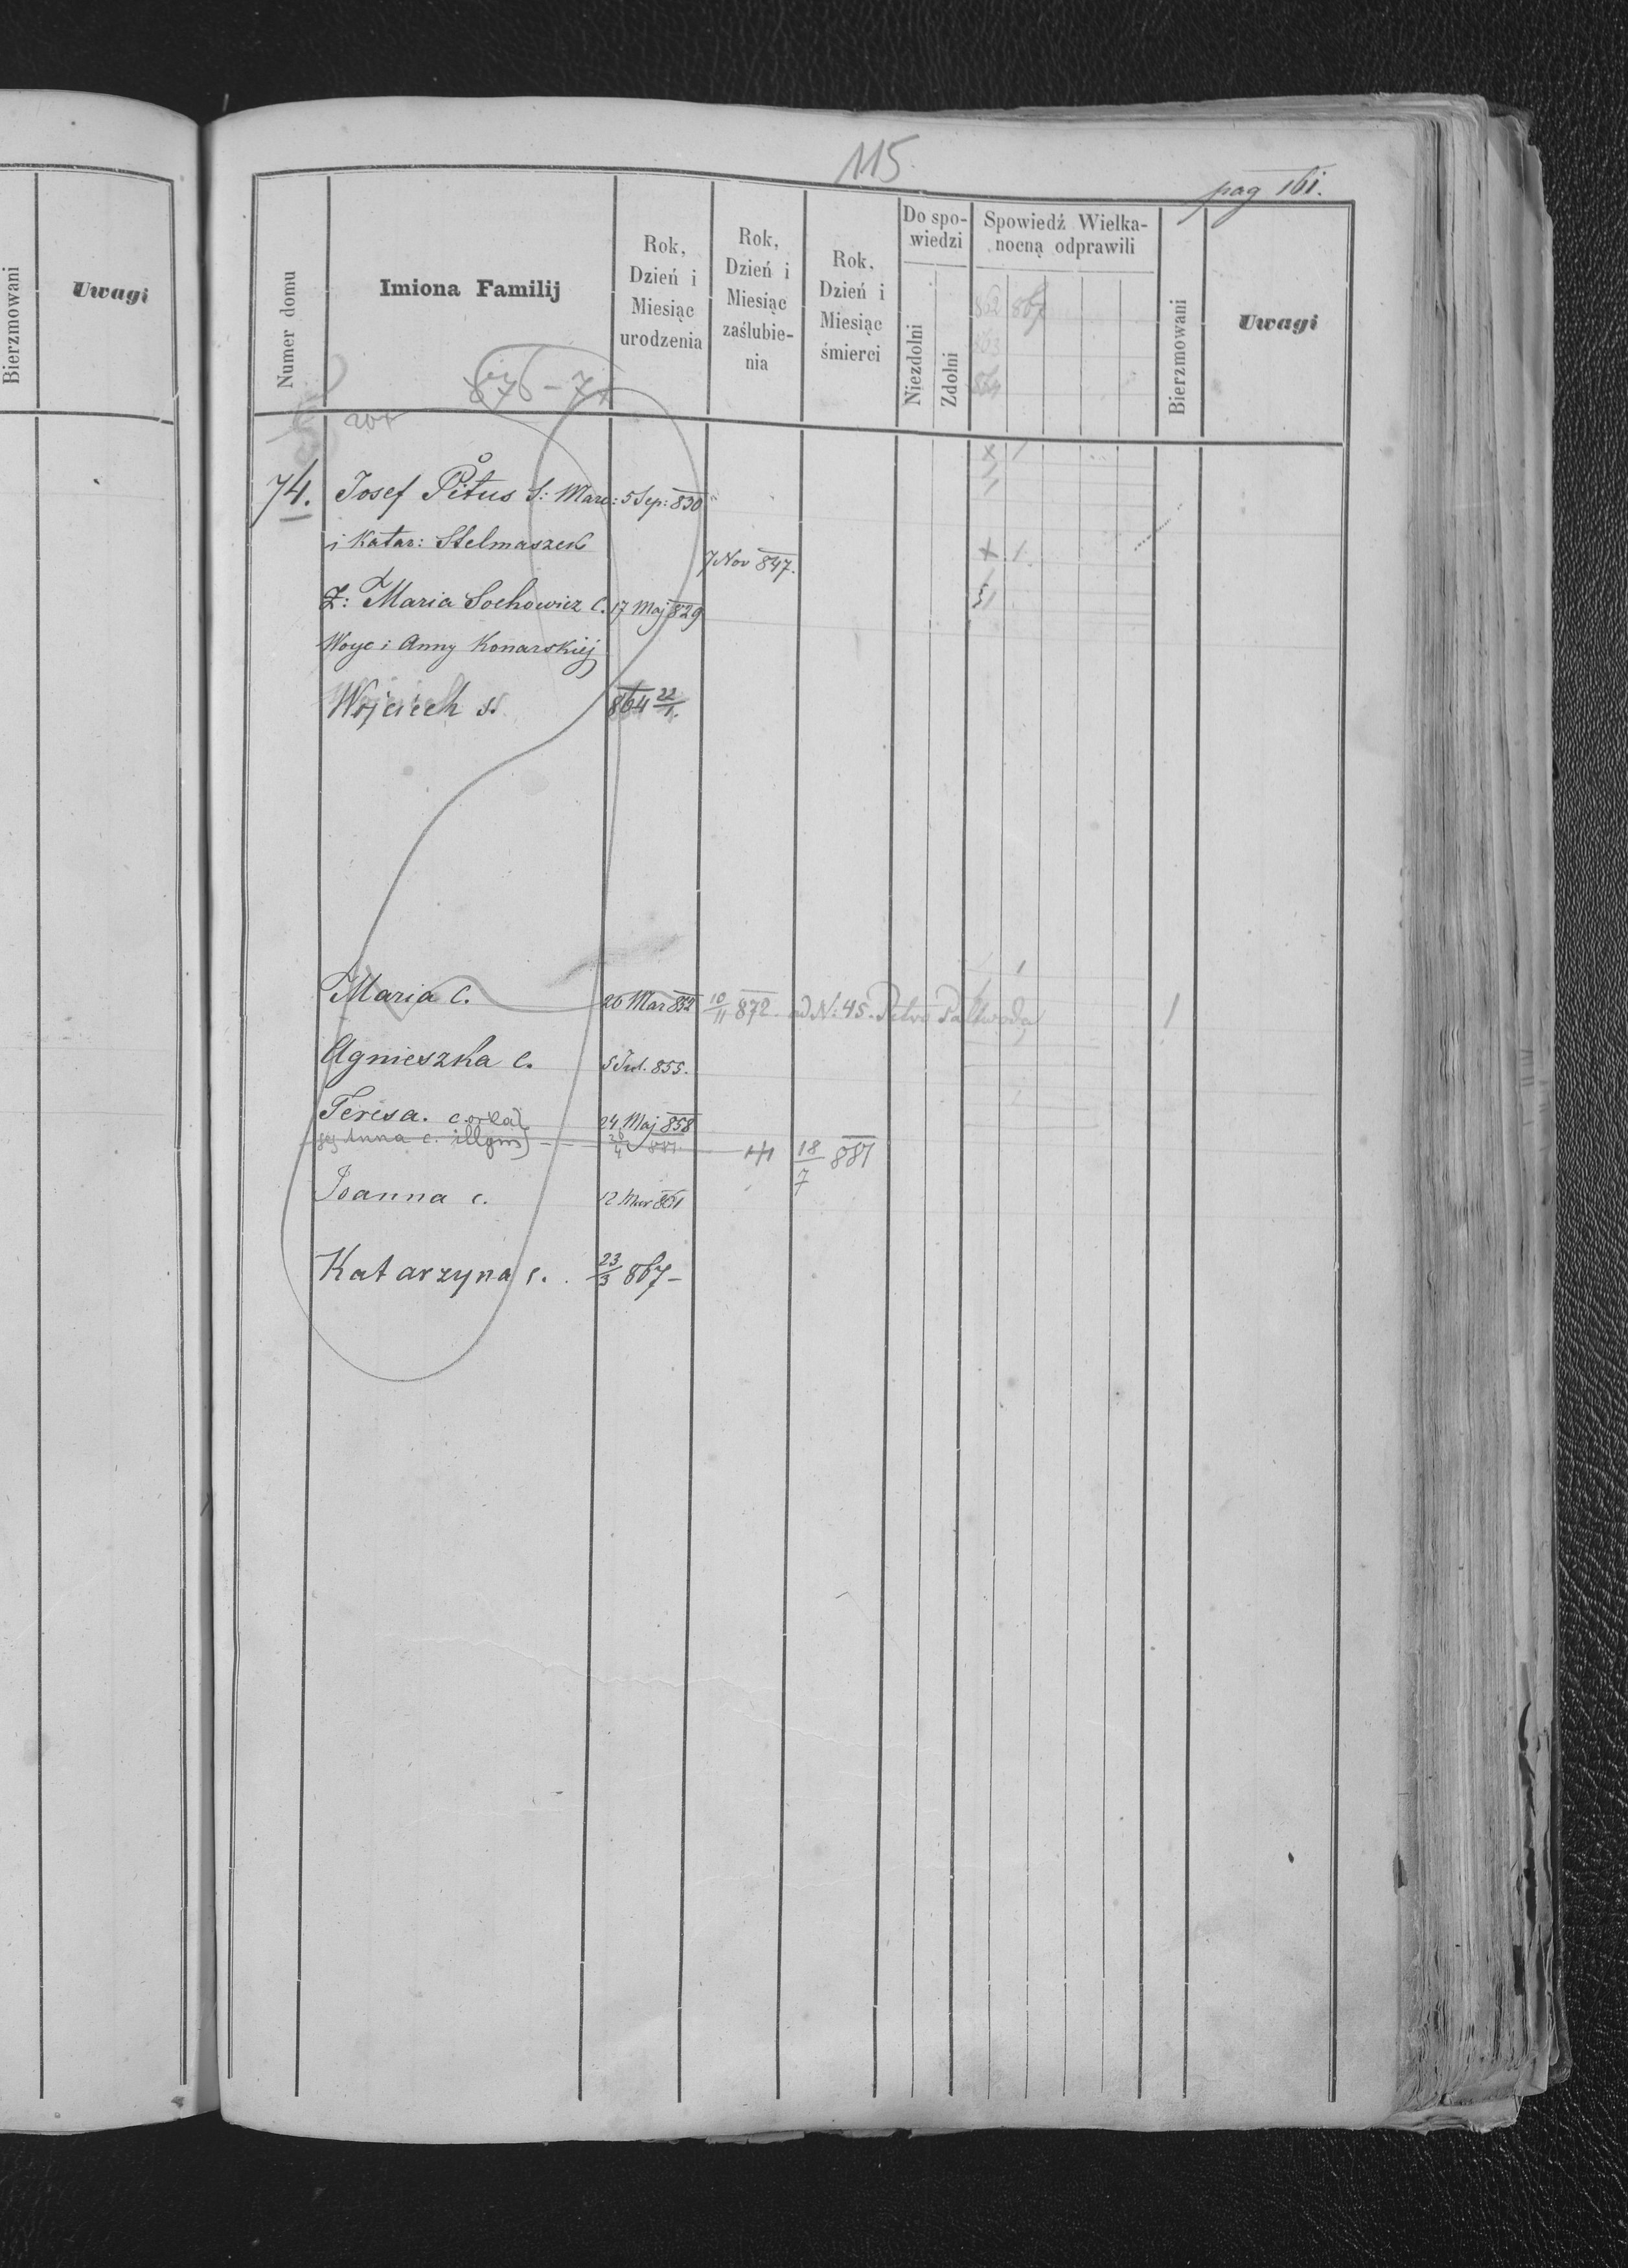 115.
pag 161.
Bierzmowani
Uwagi
Numer domu
Imiona Familij
Rok, Dzień i Miesiąc urodzenia
Rok, Dzień i Miesiąc zaślubie-nia
Rok, Dzień i Miesiąc śmierci
Do spo-wiedzi
Niezdolni
Zdolni
Spowiedź Wielka-nocną odprawili
862 867
863
864
Bierzmowani
Uwagi
876 - 7
74. Josef Pitus S: Marc: 5 Sep: 830
i Katar: Stelmaszek
7 Nov 847.
Ż: Maria Sochowicz C. 17 Maj 829
Woyc i Anny Konarskiej
Wojciech s. 864 22/1.
Maria C. 26 Mar 852 10/11 872 ad N. 45.
Agnieszka C. 5 Jul. 855.
Teresa. 24 Maj 858
Anna c. illgm 881 18/7 881
Joanna c. 12 Mar 861
Katarzyna c. 23/3 867 -